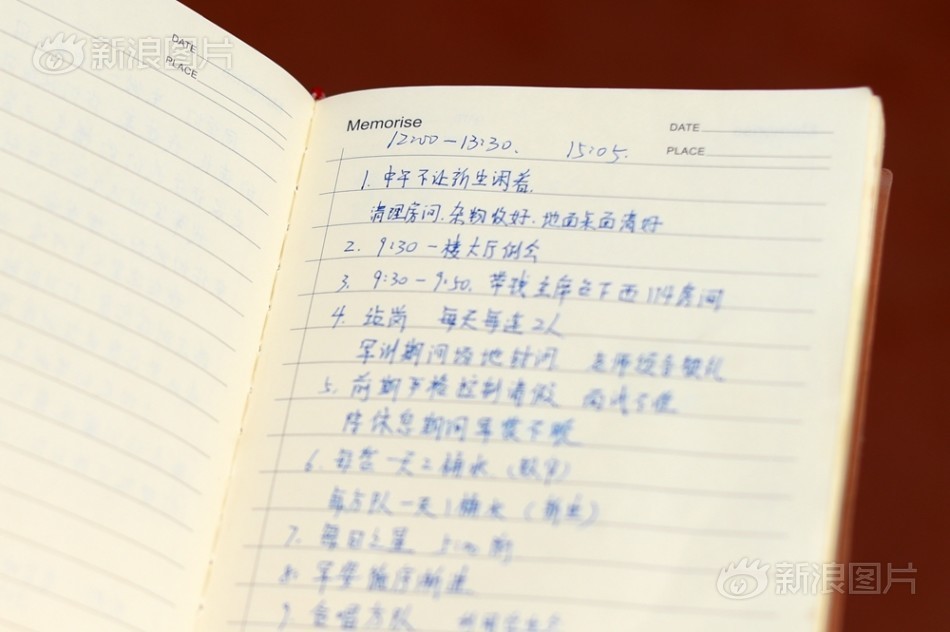 新浪图片
DATE
PLACE
Memorise
DATE
PLACE
12:00-13:30. 15:05.
1. 中午不让新生闲着.
清理房间.杂物收好.地面桌面清好
2. 9:30 一楼大厅例会
3. 9:30-9:50. 带班主席主下西114房间
4. 站岗 每天每连2人
军训期间场地封闭
5. 前期严格控制请假
除休息期间军装不脱
6. 一天2桶水
每方队一天1桶水（新生）
7. 每日之星
8.
9. 合唱方队
新浪图片